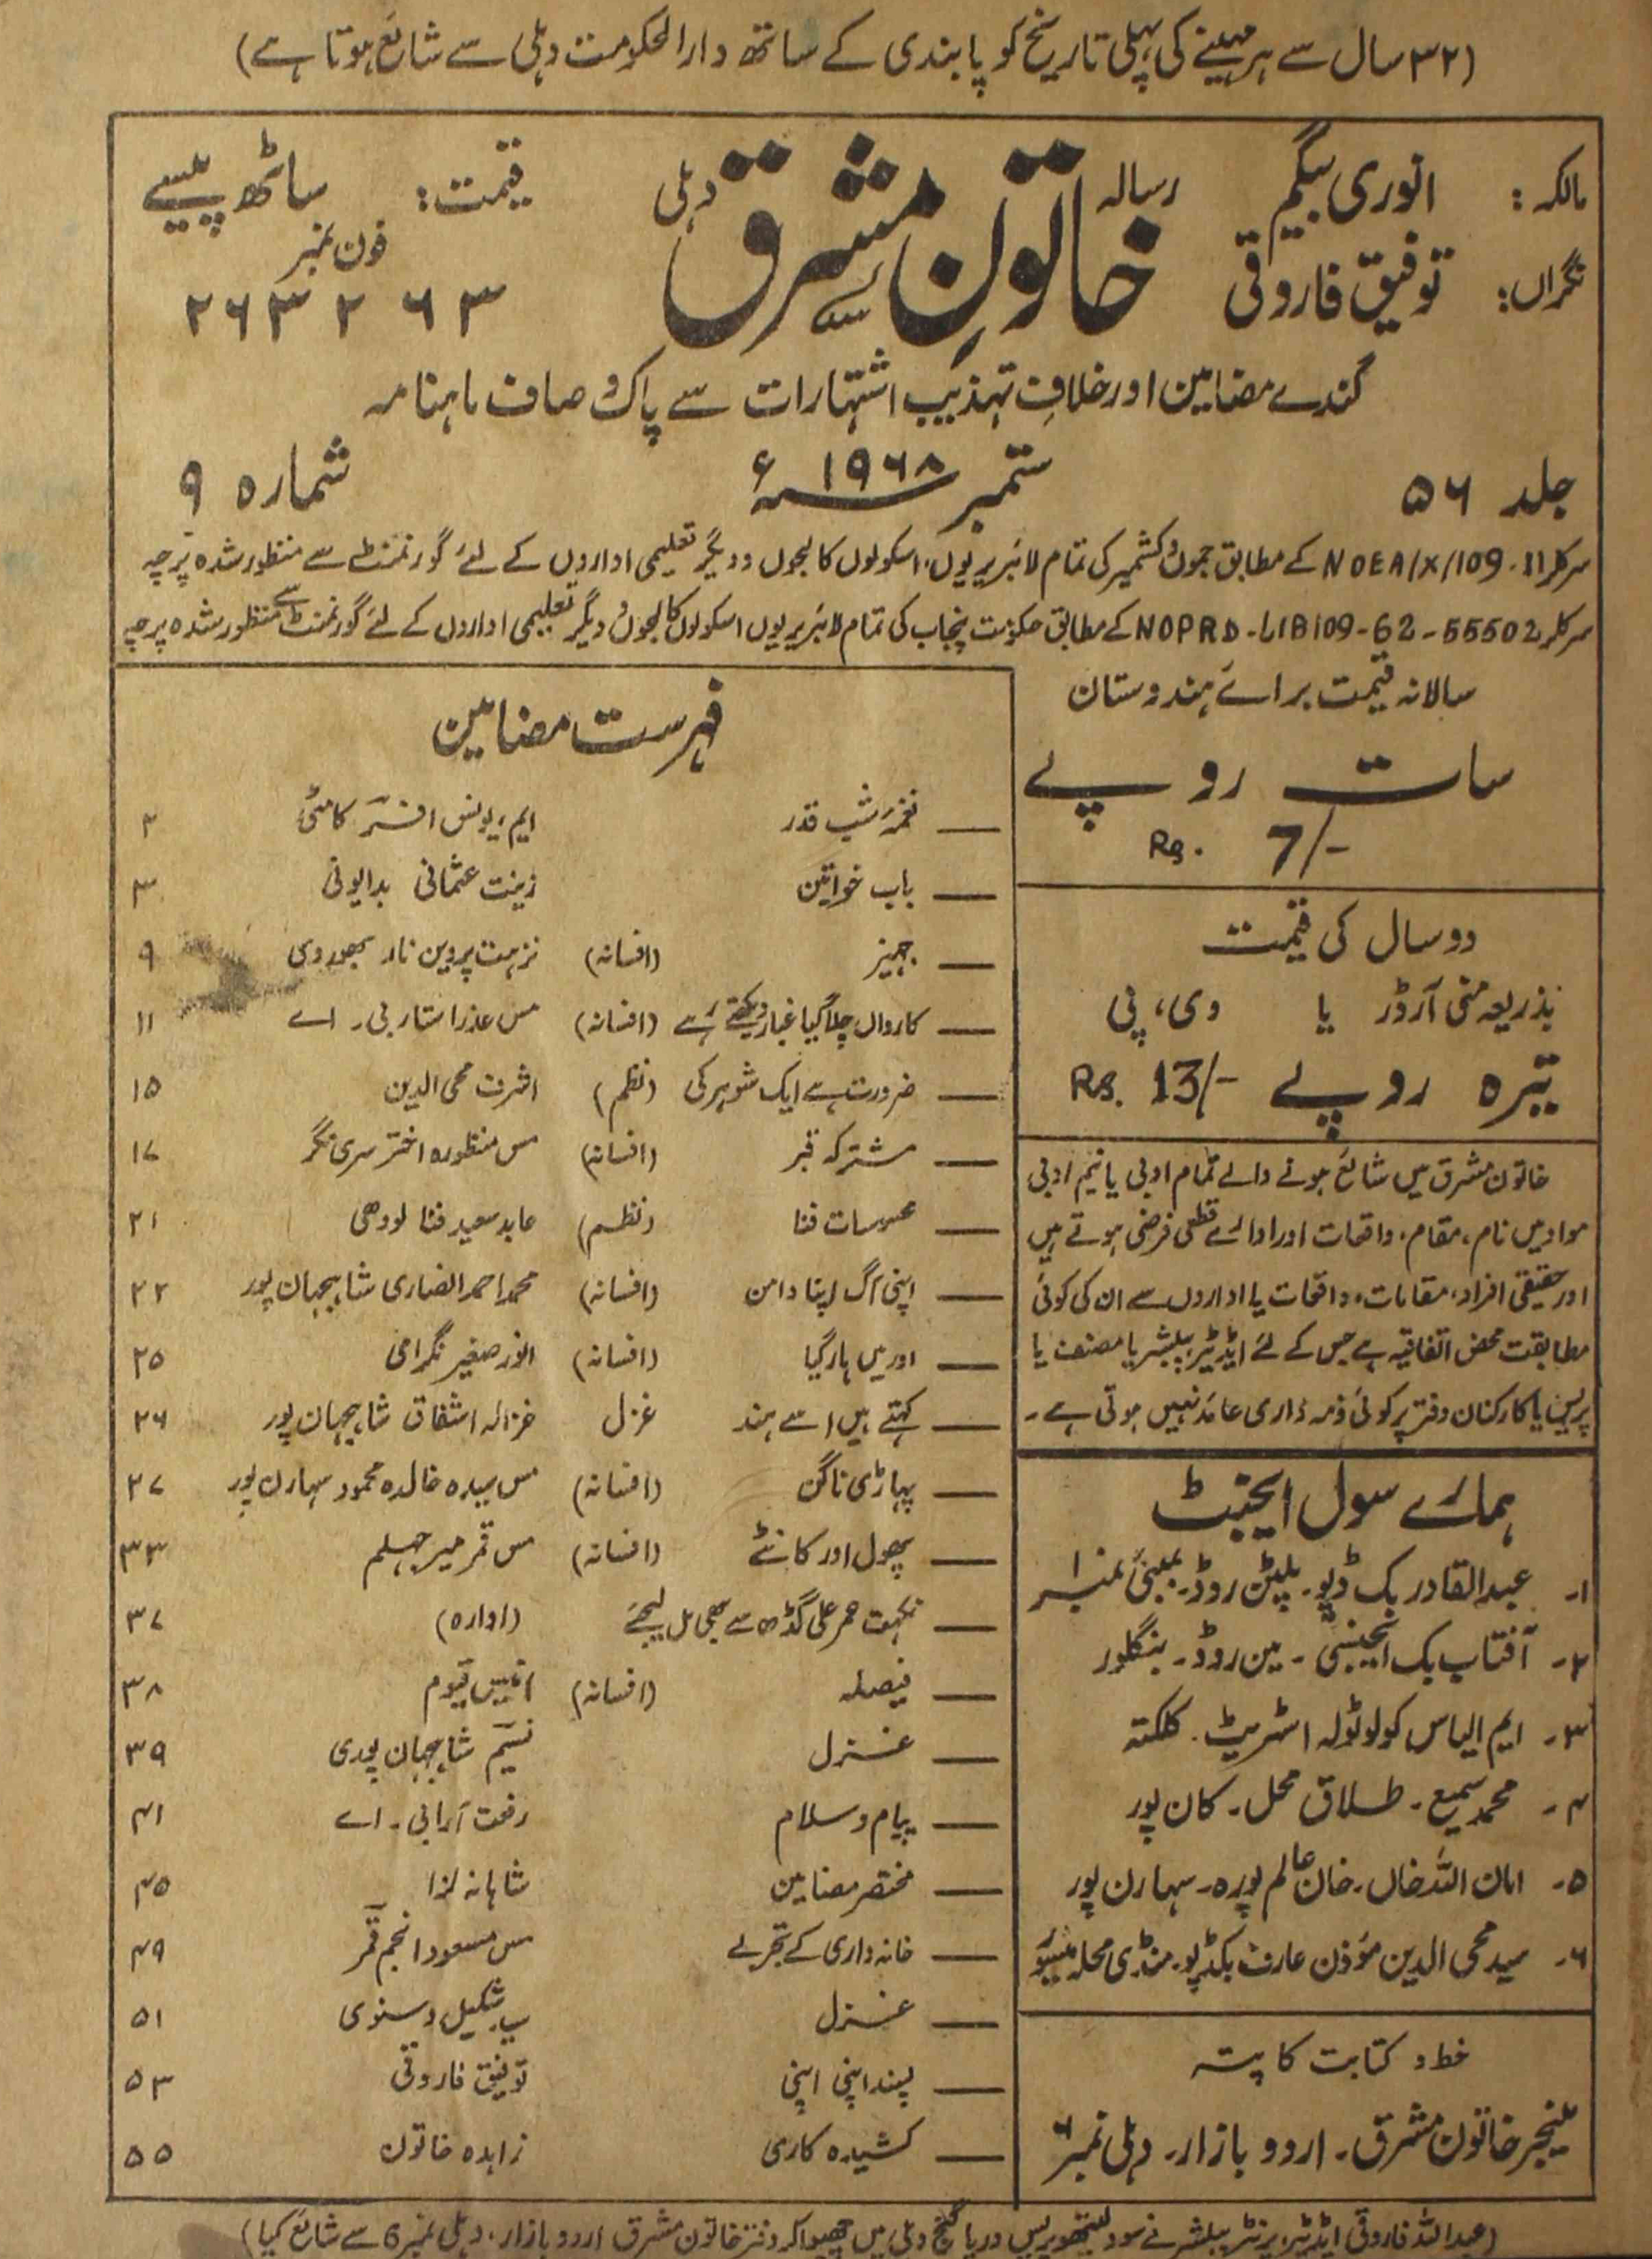 (۳۲ سال سے ہر مہینے کی پہلی تاریخ کو پابندی کے ساتھ دارالحکومت دہلی سے شائع ہوتا ہے)
مالکہ: انوری بیگم
نگراں: توفیق فاروقی
رسالہ خاتونِ مشرق دہلی
قیمت: ساٹھ پیسے
فون نمبر
۲۶۳۲۶۳
گندے مضامین اور خلافِ تہذیب اشتہارات سے پاک و صاف ماہنامہ
جلد ۵۶ ستمبر ۱۹۶۸ء شمارہ ۹
سرکلر NOEA/X/109-11 کے مطابق جموں و کشمیر کی تمام لائبریریوں، اسکولوں کالجوں و دیگر تعلیمی اداروں کے لئے گورنمنٹ سے منظور شدہ پرچہ
سرکلر NOPRD-LIB109-62-55502 کے مطابق حکومت پنجاب کی تمام لائبریریوں اسکولوں کالجوں و دیگر تعلیمی اداروں کے لئے گورنمنٹ سے منظور شدہ پرچہ
سالانہ قیمت برائے ہندوستان
سات روپے
Rs. 7/-
دو سال کی قیمت
بذریعہ منی آرڈر یا وی، پی
تیرہ روپے Rs. 13/-
خاتون مشرق میں شائع ہونے والے تمام ادبی یا نیم ادبی
مواد میں نام، مقام، واقعات اور ادارے قطعی فرضی ہوتے ہیں
اور حقیقی افراد، مقامات، واقعات یا اداروں سے ان کی کوئی
مطابقت محض اتفاقیہ ہے جس کے لئے ایڈیٹر پبلشر یا مصنف یا
پریس یا کارکنان دفتر پر کوئی ذمہ داری عائد نہیں ہوتی ہے۔
ہمارے سول ایجنٹ
۱۔ عبدالقادر بک ڈپو۔ پلٹن روڈ۔ بمبئی نمبر ۱
۲۔ آفتاب بک ایجنسی۔ مین روڈ۔ بنگلور
۳۔ ایم الیاس کولوٹولہ اسٹریٹ۔ کلکتہ
۴۔ محمد سمیع۔ طلاق محل۔ کان پور
۵۔ امان اللہ خاں۔ خان عالم پورہ۔ سہارن پور
۶۔ سید محی الدین مؤذن عارف بکڈپو۔ منڈی محلہ میسور
خط و کتابت کا پتہ
منیجر خاتون مشرق۔ اردو بازار۔ دہلی نمبر ۶
فہرست مضامین
— نغمۂ شب قدر ایم، یونس افسر کامٹی ۲
— باب خواتین زینت عثمانی بدایونی ۳
— جہیز (افسانہ) نزہت پروین ناز ۹
— کارواں چلا گیا غبار دیکھتے رہے (افسانہ) مس عذرا ستار بی۔ اے ۱۱
— ضرورت ہے ایک شوہر کی (نظم) اشرف محی الدین ۱۵
— مشترکہ قبر (افسانہ) مس منظورہ اختر سری نگر ۱۷
— محسوسات فنا (نظم) عابد سعید فنا لودھی ۲۱
— اپنی آگ اپنا دامن (افسانہ) محمد احمد انصاری شاہجہان پور ۲۲
— اور میں ہار گیا (افسانہ) انور صغیر نگرامی ۲۵
— کہتے ہیں اسے ہند غزل غزالہ اشفاق شاہجہان پور ۲۶
— پہاڑی ناگن (افسانہ) مس سیدہ خالدہ محمود سہارن پور ۲۷
— پھول اور کانٹے (افسانہ) مس قمر میر جہلم ۳۳
— نکہت حمر علی گڈھ سے بھی مل لیجئے (ادارہ) ۳۷
— فیصلہ (افسانہ) انیس قیوم ۳۸
— غزل نسیم شاہجہان پوری ۳۹
— پیام و سلام رفعت آرا بی۔ اے ۴۱
— مختصر مضامین شاہانہ لزا ۴۵
— خانہ داری کے تجربے مس مسعود انجم قمر ۴۹
— غزل سید شکیل دسنوی ۵۱
— پسند اپنی اپنی توفیق فاروقی ۵۳
— کشیدہ کاری زاہدہ خاتون ۵۵
(عبداللہ فاروقی ایڈیٹر، پرنٹر پبلشر نے سود لیتھو پریس دریا گنج دہلی میں چھپوا کر دفتر خاتون مشرق اردو بازار، دہلی نمبر 6 سے شائع کیا)